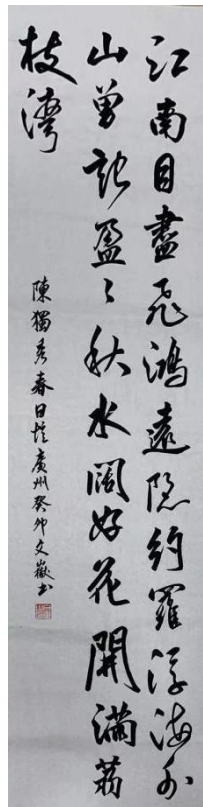 江南目盡飛鴻遠隐約羅浮海外
山曾記盈〻秋水闊好花開滿荔
枝灣
陳獨秀春日憶廣州癸卯文嶽书